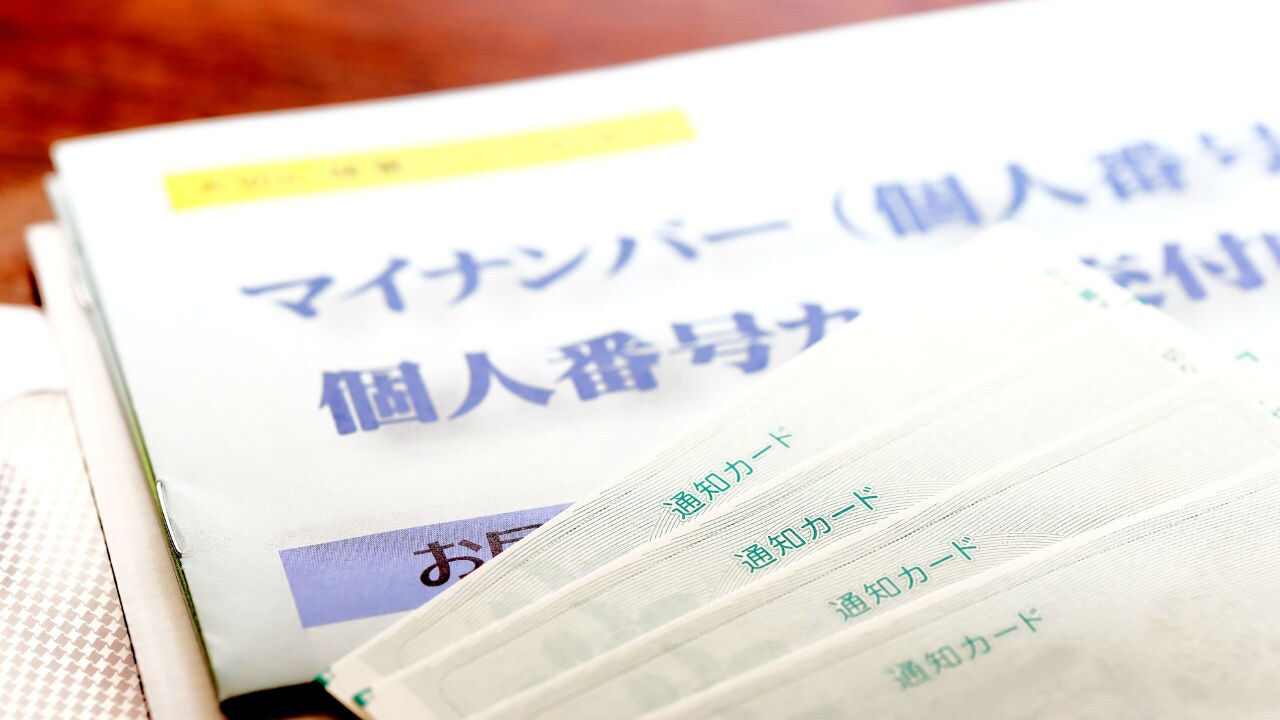 マイナンバー(個人番号
個人番号カ 交付
お
通知カード
通知カード
通知カード
通知カード